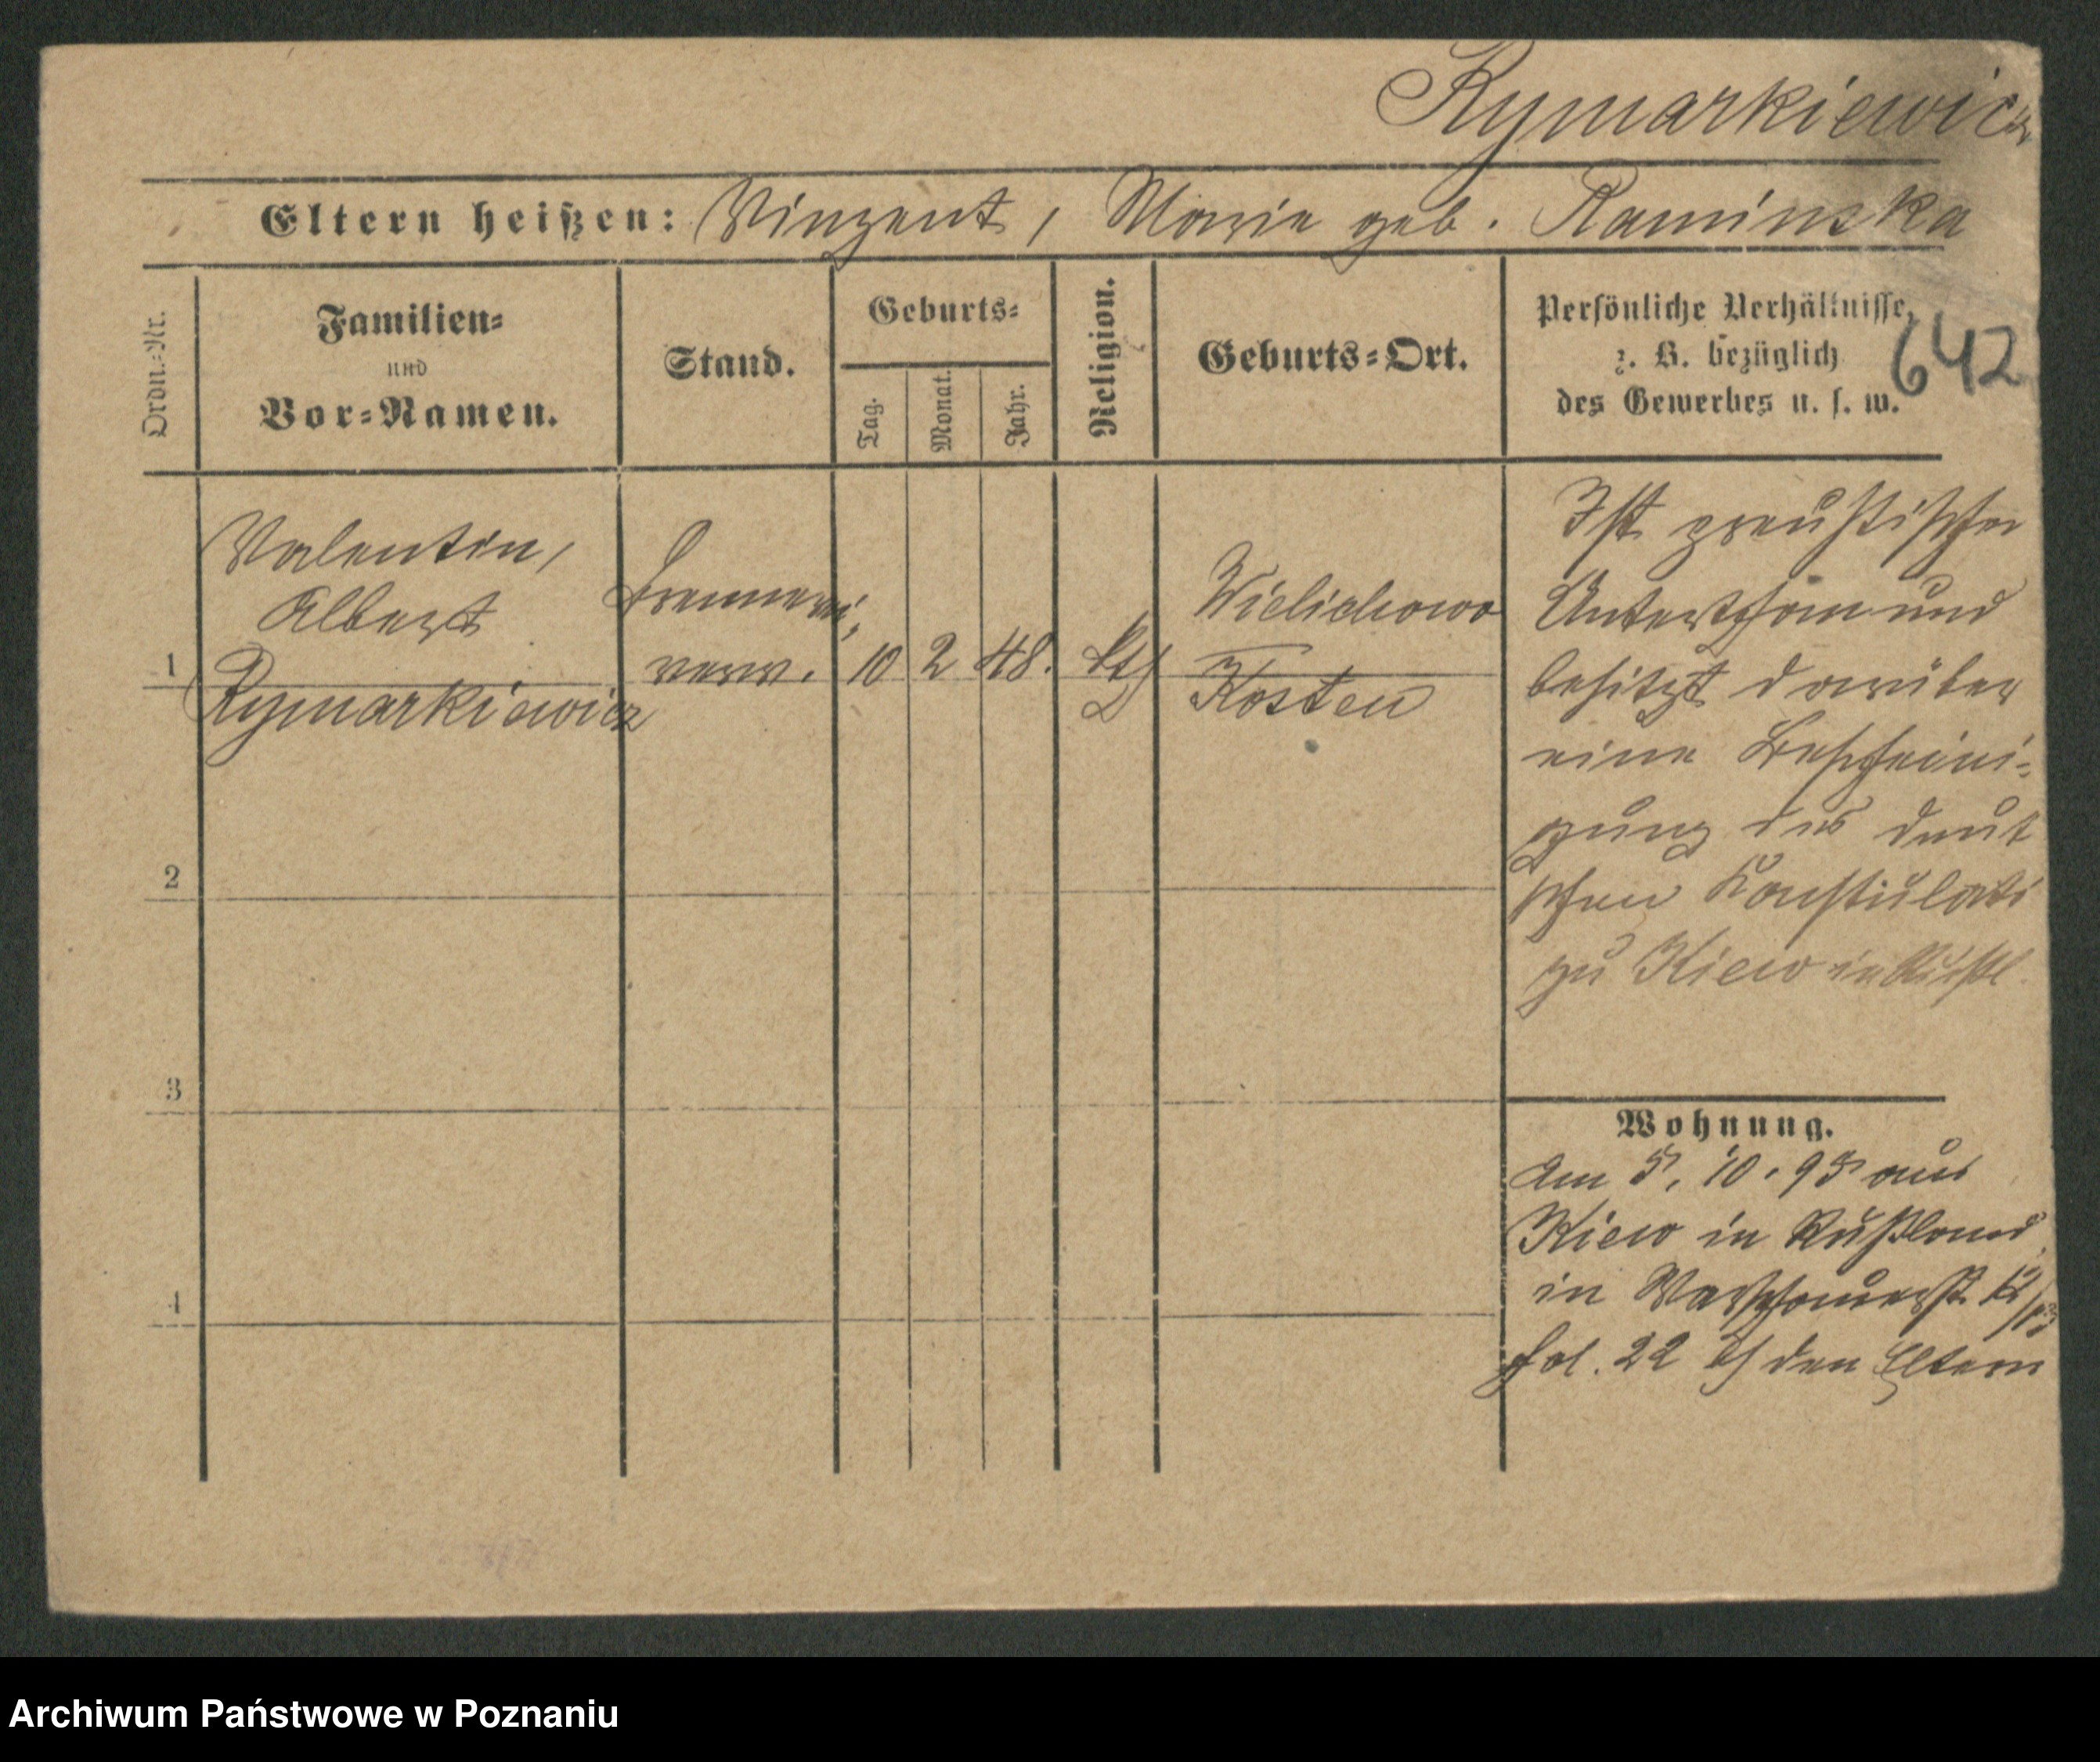 Rymarkiewicz
Eltern heißen: Vinzent, Marie geb. Kaminska
Ordn.-Nr.
Familien-
und
Vor-Namen.
Stand.
Geburts-
Tag.
Monat.
Jahr.
Religion.
Geburts-Ort.
Persönliche Verhältnisse,
z. B. bezüglich
des Gewerbes u. s. w.
642
1
Valentin,
Albert
Rymarkiewicz
brennerei,
verw.
10 2 48.
kth
Wielichowo
Kosten
Ist preußischer
Unterthan und
besitzt darüber
eine Bescheini-
gung des deut
schen Konsulats
zu Kiew in Rußl.
2
3
4
Wohnung.
Am 5. 10. 95 aus
Kiew in Rußland
in Warschauerst.
fol. 22 den Eltern
Archiwum Państwowe w Poznaniu